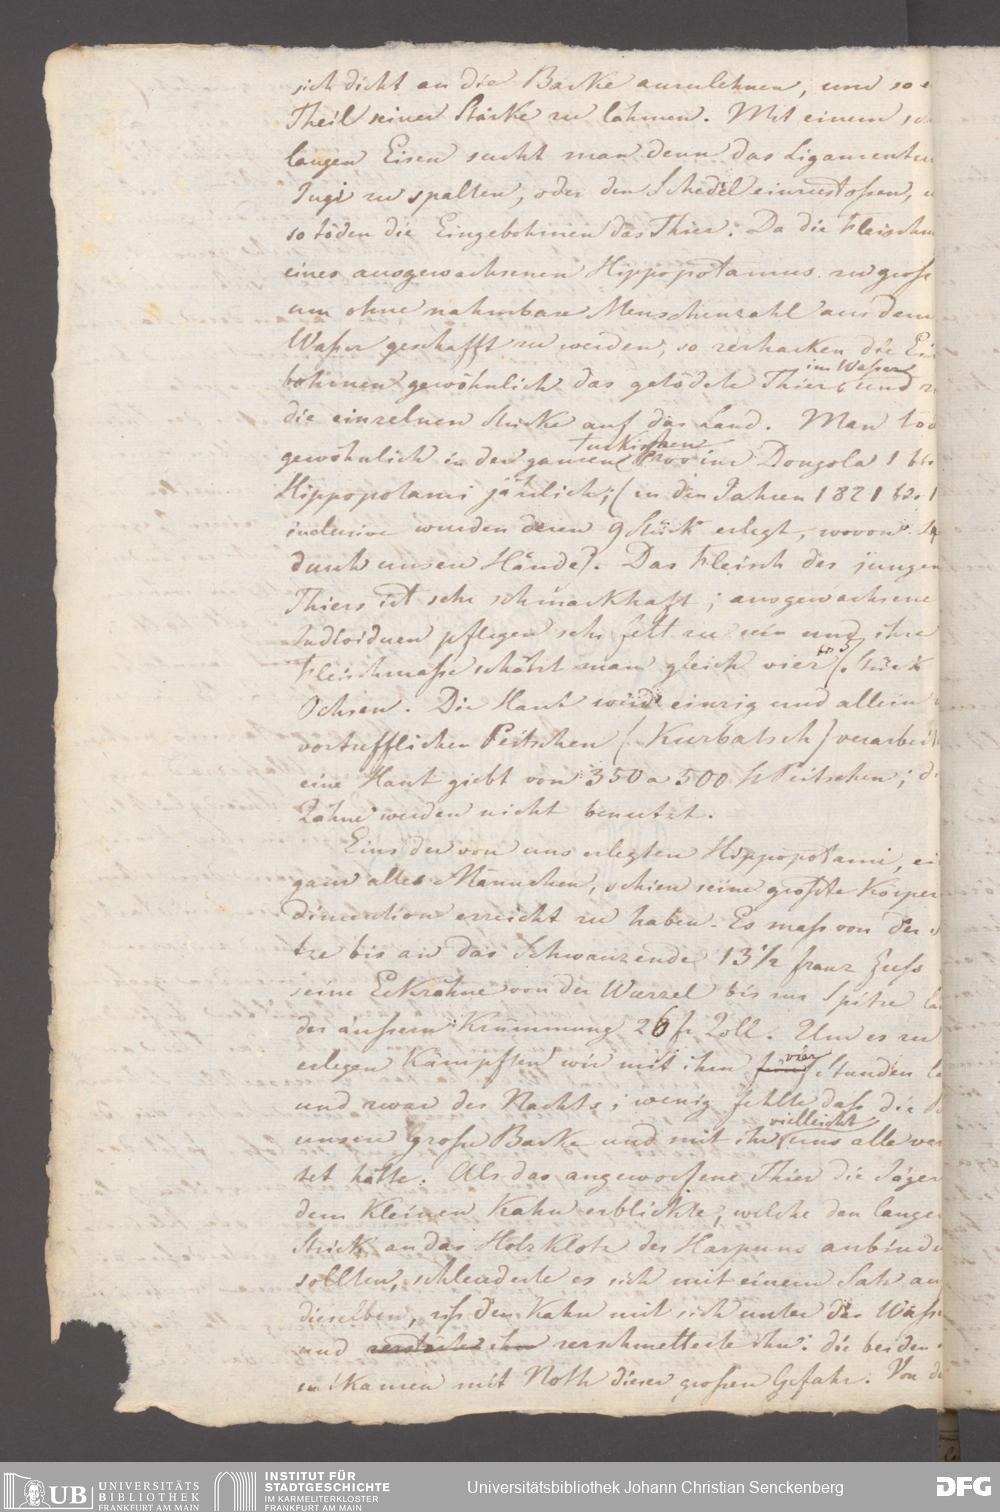 sich dicht an die Barke anzulehnen, und so e
Theil seiner Stärke zu lähmen. Mit einem sch
langen Eisen sucht man denn das Ligamentu
Jugi zu spalten, oder den Schedel einzustoßen, u
so töden die Eingebohrnen das Thier. Da die Fleischm
eines ausgewachsenen Hippopotamus zu gross
um ohne nahmbare Menschenzahl aus dem
Waßer geschafft zu werden, so zerhacken die Ein
im Waßer
bohrnen gewöhnlich das getödete Thier und z
die einzelnen Stücke auf das Land. Man töd
turkischen
gewöhnlich in der ganzen Provinz Dongola 1 bis
Hippopotami jährlich; (in den Jahren 1821 bis 1
inclusive wurden deren 9 Stück erlegt, wovon
durch unsere Hände). Das Fleisch des jungen
Thiers ist sehr schmackhaft; ausgewachsene
Individuen pflegen sehr fett zu sein und ihre
bis 5
Fleischmaße schätzt man gleich vier Stück
Ochsen. Die Haut wird einzig und allein
vortrefflichen Peitschen (Kurbatsch) verarbeit
eine Haut giebt von 350 a 500 St Peitschen; d
Zähne werden nicht benutzt.
Eins der von uns erlegten Hippopotami, ei
ganz altes Männchen, schien seine größte Körper
dimention erreicht zu haben. Es maß von der
tze bis an das Schwanzende 13 1/2 franz Fuss
seine Eckzähne von der Wurzel bis zur Spitze la
der äußern Krümmung 26 fr Zoll. Um es zu
vier
erlegen kämpften wir mit ihm fünf Stunden la
und zwar des Nachts; wenig fehlte daß die B
vielleicht
unsere große Barke und mit ihr uns alle ver
tet hätte. Als das angeworfene Thier die Jäger
dem kleinen Kahn erblickte, welche den lange
Strick an das Holz Klotz des Harpuns anbinde
sollten, schleuderte es sich mit einem Satz au
dieselben, riß den Kahn mit sich unter das Waße
und zerschmetterte ihn: die beiden
kamen mit Noth dieser großen Gefahr. Von d
UB UNIVERSITÄTS
BIBLIOTHEK
FRANKFURT AM MAIN
INSTITUT FÜR
STADTGESCHICHTE
IM KARMELITERKLOSTER
FRANKFURT AM MAIN
Universitätsbibliothek Johann Christian Senckenberg
DFG